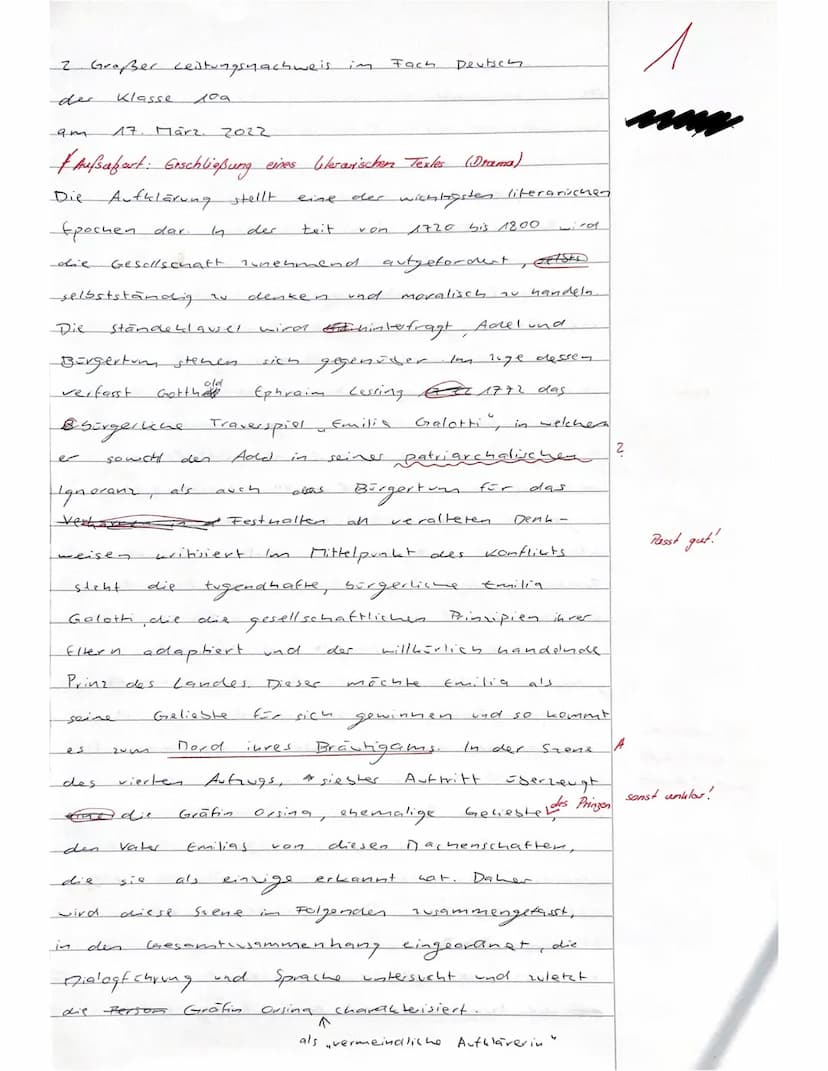 2. Großer Leistungsnachweis im Fach Deutsch
der Klasse 10a
am 17. März. 2022
1
Aufsatzart: Erschließung eines literarischen Textes (Drama)
Die Aufklärung stellt eine der wichtigsten literarischen
Epochen dar. In der Zeit von 1720 bis 1800 wird
die Gesellschaft zunehmend aufgefordert,
selbstständig zu denken und moralisch zu handeln.
Die Ständeklausel wird hinterfragt, Adel und
Bürgertum stehen sich gegenüber. Im Zuge dessen
verfasst Gotthold Ephraim Lessing 1772 das
bürgerliche Trauerspiel „Emilia Galotti", in welchem
er sowohl den Adel in seiner patriarchalischen ?
Ignoranz, als auch das Bürgertum für das
Festhalten an veralteten Denk-
weisen kritisiert. Im Mittelpunkt des Konflikts
Passt gut!
steht die tugendhafte, bürgerliche Emilia
Galotti, die die gesellschaftlichen Prinzipien ihrer
Eltern adaptiert und der willkürlich handelnde
Prinz des Landes. Dieser möchte Emilia als
seine Geliebte für sich gewinnen und so kommt
es zum Mord ihres Bräutigams. In der Szene A
des vierten Aufzugs, siebter Auftritt überzeugt
die Gräfin Orsina, ehemalige Geliebte des Prinzen, sonst unklar!
den Vater Emilias von diesen Machenschaften,
die sie als einzige erkannt hat. Daher
wird diese Szene im Folgenden zusammengefasst,
in den Gesamtzusammenhang eingeordnet, die
Dialogführung und Sprache untersucht und zuletzt
die Person Gräfin Orsina charakterisiert.
als „vermeindliche Aufklärerin"